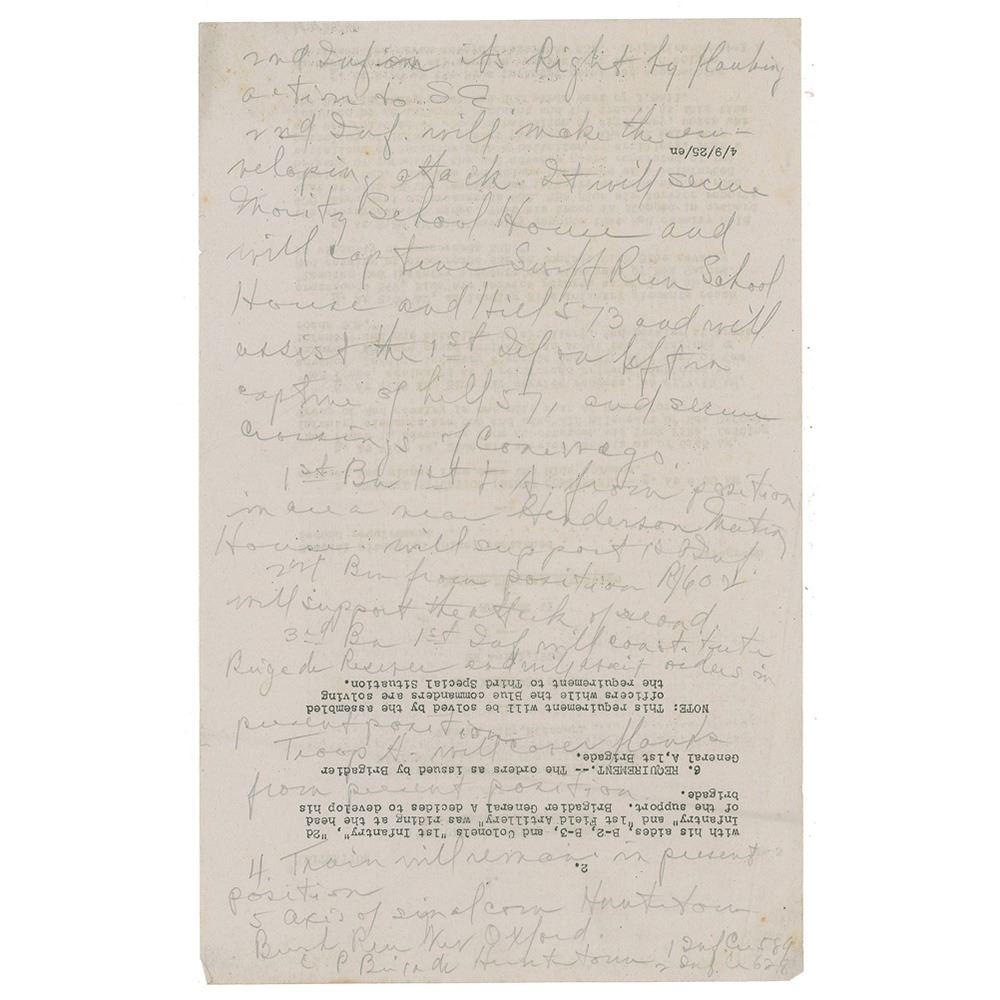 2nd Inf on its Right by flanking
action to SE
2nd Inf. will make the en-
4/9/25/en
veloping attack. It will secure
Moritz School House and
will capture Swift Run School
House and Hill 573 and will
assist the 1st Inf on left in
capture of hill 57, and secure
crossings of Conewago.
1st Bn 1st F. A. from position
in area near Henderson Meeting
House will support 1st Inf
2nd Bn from position
will support the attack of second.
3rd Ba 1st Inf will constitute
Brigade Reserve and will await orders in
present position.
Troop A. will cover flanks
from present position.
4. Train will remain in present
position
5 axis of sinal com Hunterstown
Brush Run New Oxford.
C P Brigade Hunterstown 1 Inf Cr 589
2 Inf. Cr 628
2.
with his aides, B-2, B-3, and Colonels "1st Infantry", "2d
Infantry" and "1st Field Artillery" was riding at the head
of the support. Brigadier General A decides to develop his
brigade.
6. REQUIREMENT.-- The orders as issued by Brigadier
General A, 1st Brigade.
NOTE: This requirement will be solved by the assembled
officers while the Blue commanders are solving
the requirement to Third Special Situation.